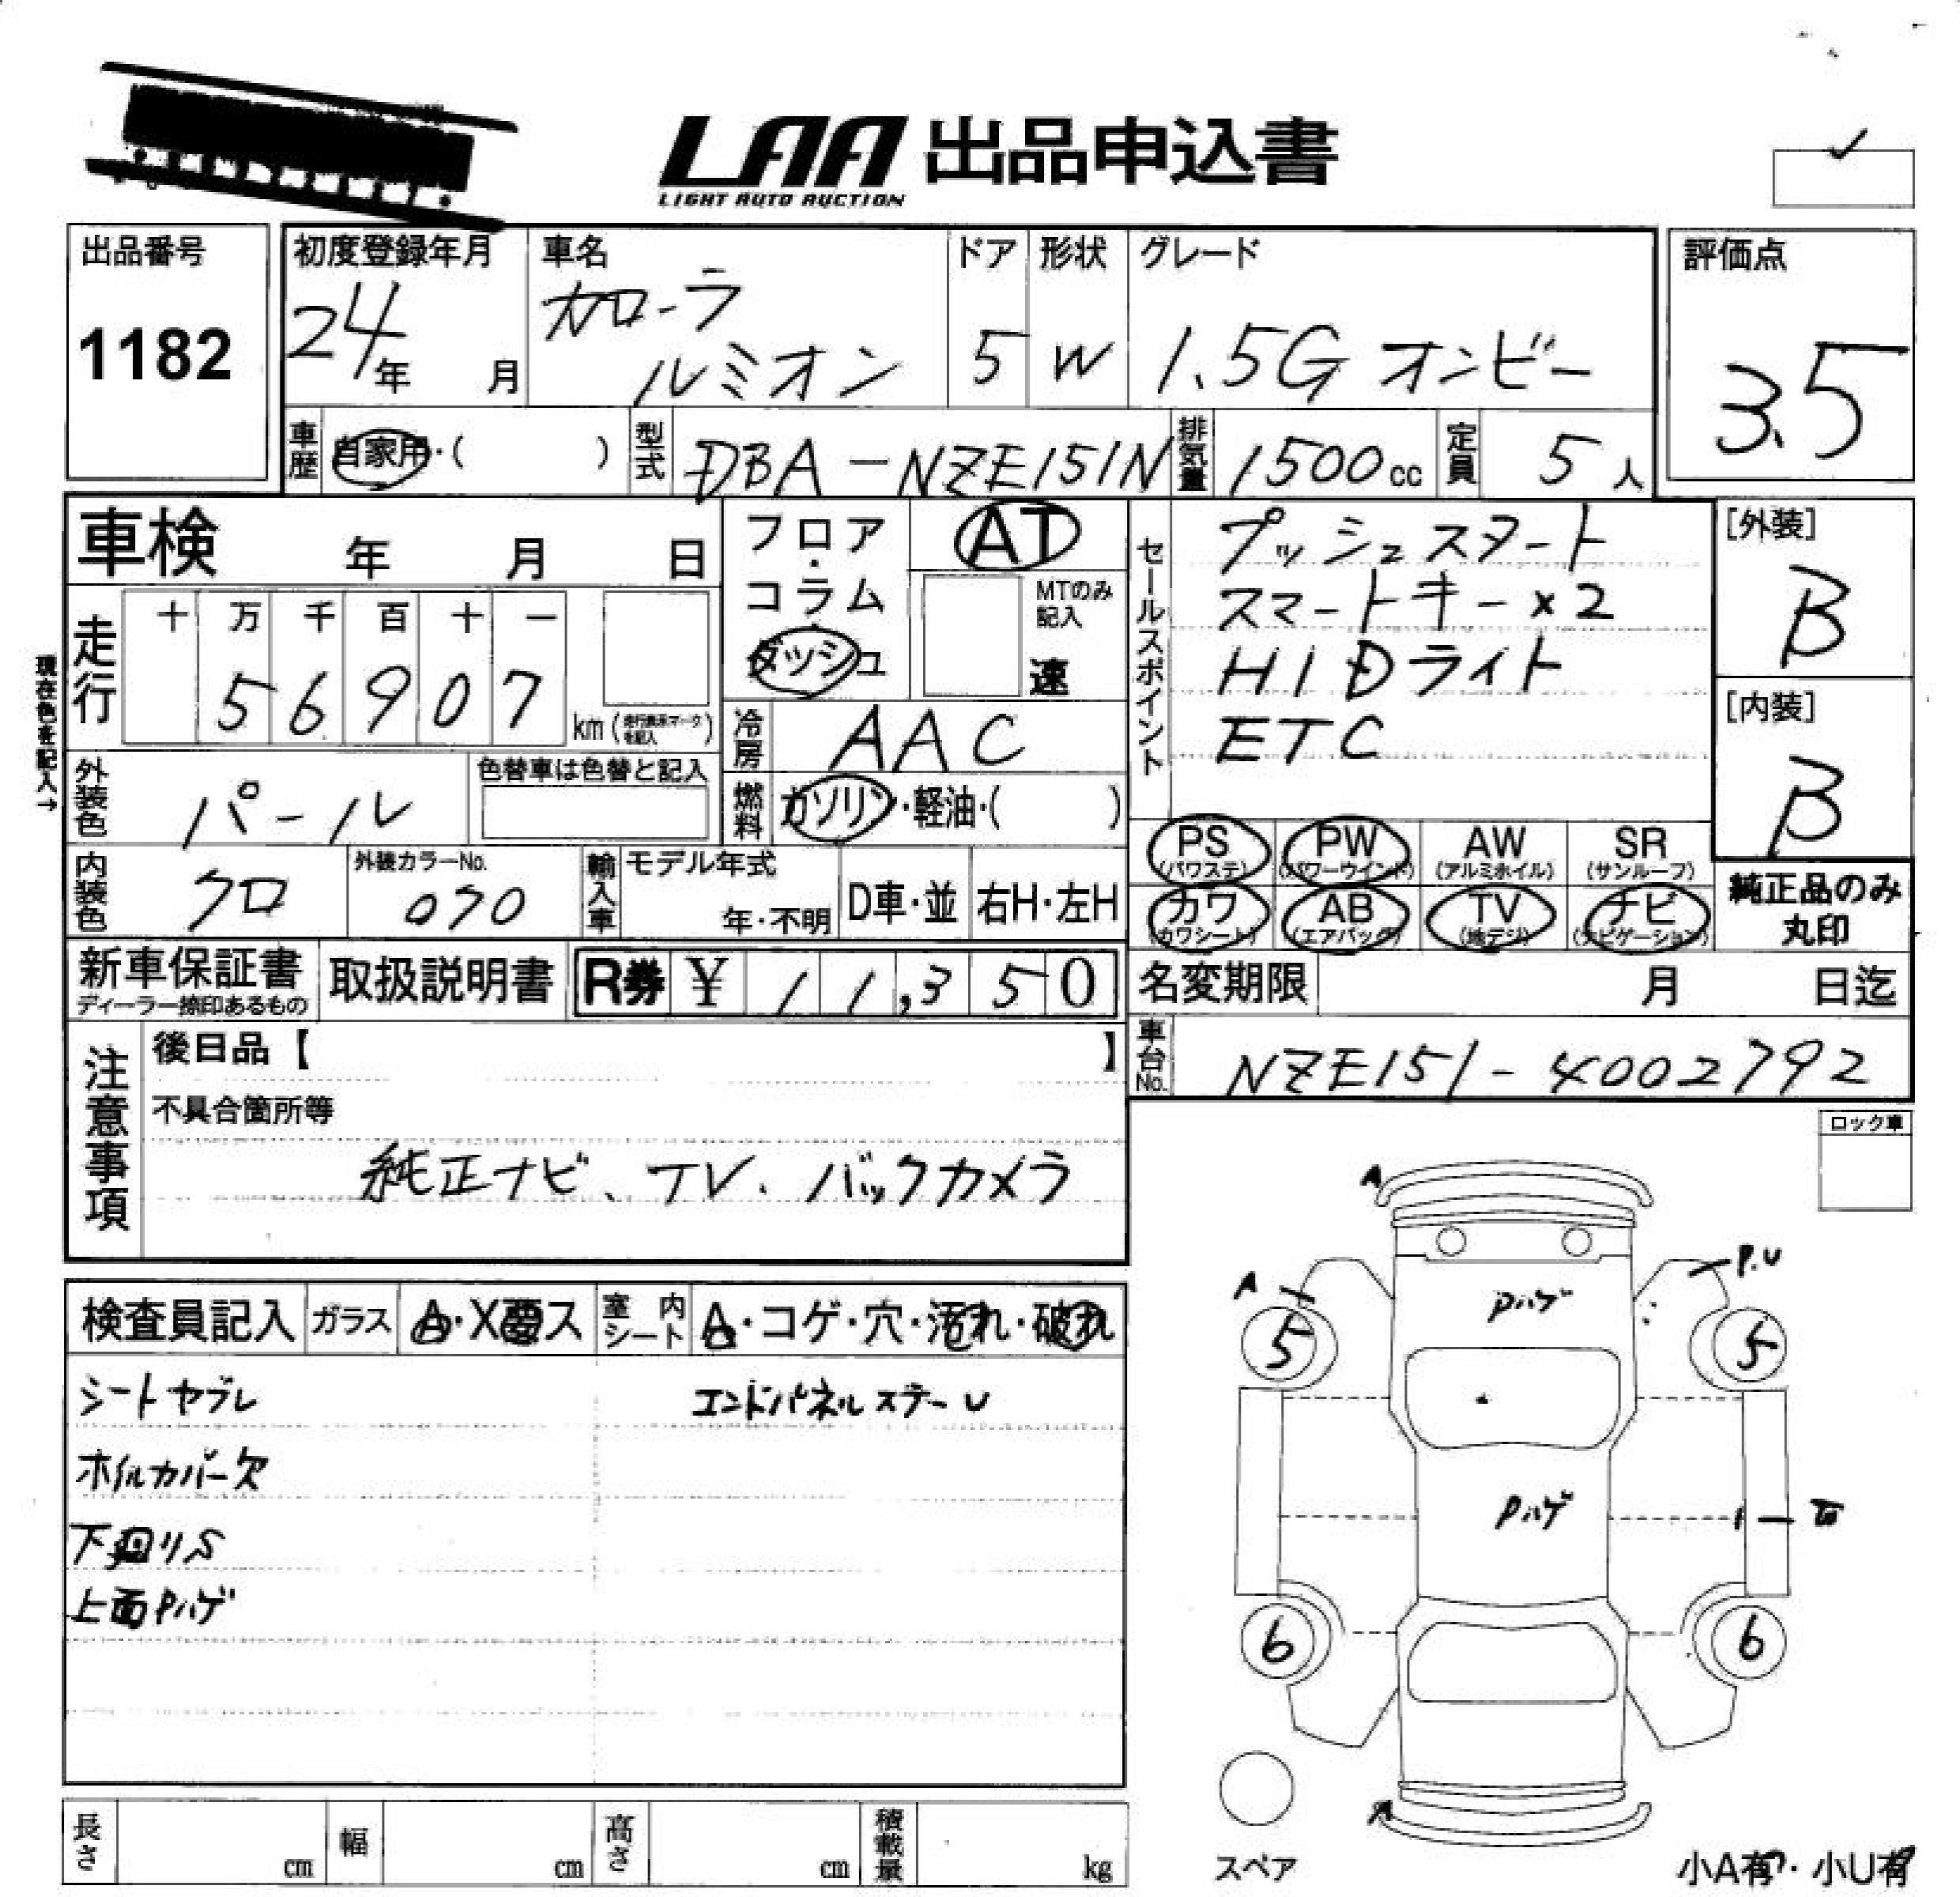 LAA 出品申込書
LIGHT AUTO AUCTION
出品番号
1182
初度登録年月
24年 月
車名
カローラ
ルミオン
ドア
5
形状
W
グレード
1.5G オンビー
評価点
3.5
車歴 自家用・( )
型式 DBA-NZE151N
排気量 1500cc
定員 5人
車検 年 月 日
フロア・コラム
ダッシュ
AT
MTのみ記入
速
セールスポイント
プッシュスタート
スマートキー×2
HIDライト
ETC
[外装]
B
[内装]
B
現在色を記入→
走行
十 万 千 百 十 一
5 6 9 0 7 km(走行表示マークを記入)
冷房 AAC
外装色 パール
色替車は色替と記入
燃料 ガソリン・軽油・( )
内装色 クロ
外装カラーNo.
070
輸入車
モデル年式
年・不明
D車・並
右H・左H
PS (パワステ)
PW (パワーウインド)
AW (アルミホイル)
SR (サンルーフ)
カワ (カワシート)
AB (エアバッグ)
TV (地デジ)
ナビ (ナビゲーション)
純正品のみ
丸印
新車保証書
ディーラー捺印あるもの
取扱説明書
R券 ¥ 11,350
名変期限 月 日迄
車台No. NZE151-4002792
注意事項
後日品【 】
不具合箇所等
純正ナビ、TV、バックカメラ
ロック車
検査員記入
ガラス A・X要ス
室内シート A・コゲ・穴・汚れ・破れ
シートヤブレ
エンドパネルステーU
ホイルカバー欠
下廻りS
上面Pハゲ
A
A
P.U
Pハゲ
5
5
Pハゲ
6
6
A
スペア
小A有・小U有
長さ cm
幅 cm
高さ cm
積載量 kg